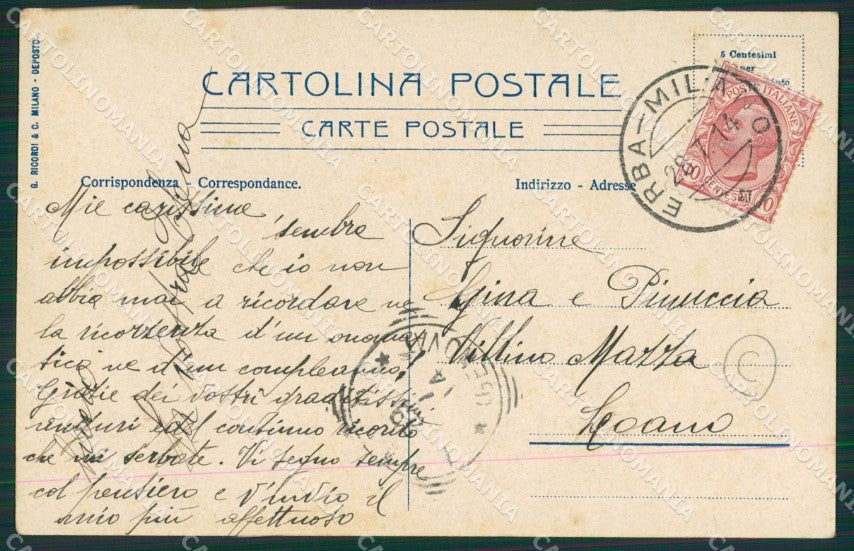 G. RICORDI & C. MILANO - DEPOSTO
CARTOLINA POSTALE
CARTE POSTALE
5 Centesimi
per
POSTE ITALIANE
10 CENTESIMI 10
ERBA-MILANO
28.7.14
Corrispondenza - Correspondance.
Indirizzo - Adresse
Mie carissime
sembra
impossibile che io non
abbia mai a ricordare ne
la ricorrenza d'un onoma
stico ne d'un compleanno,
Grazie dei vostri graditissimi
auguri ed continuo ricordo
che mi serbate. Vi seguo sempre
col pensiero e v'invio il
mio più affettuoso
Signorine
Gina e Pinuccia
Villino Mazza
Loano
CARTOLINOMANIA